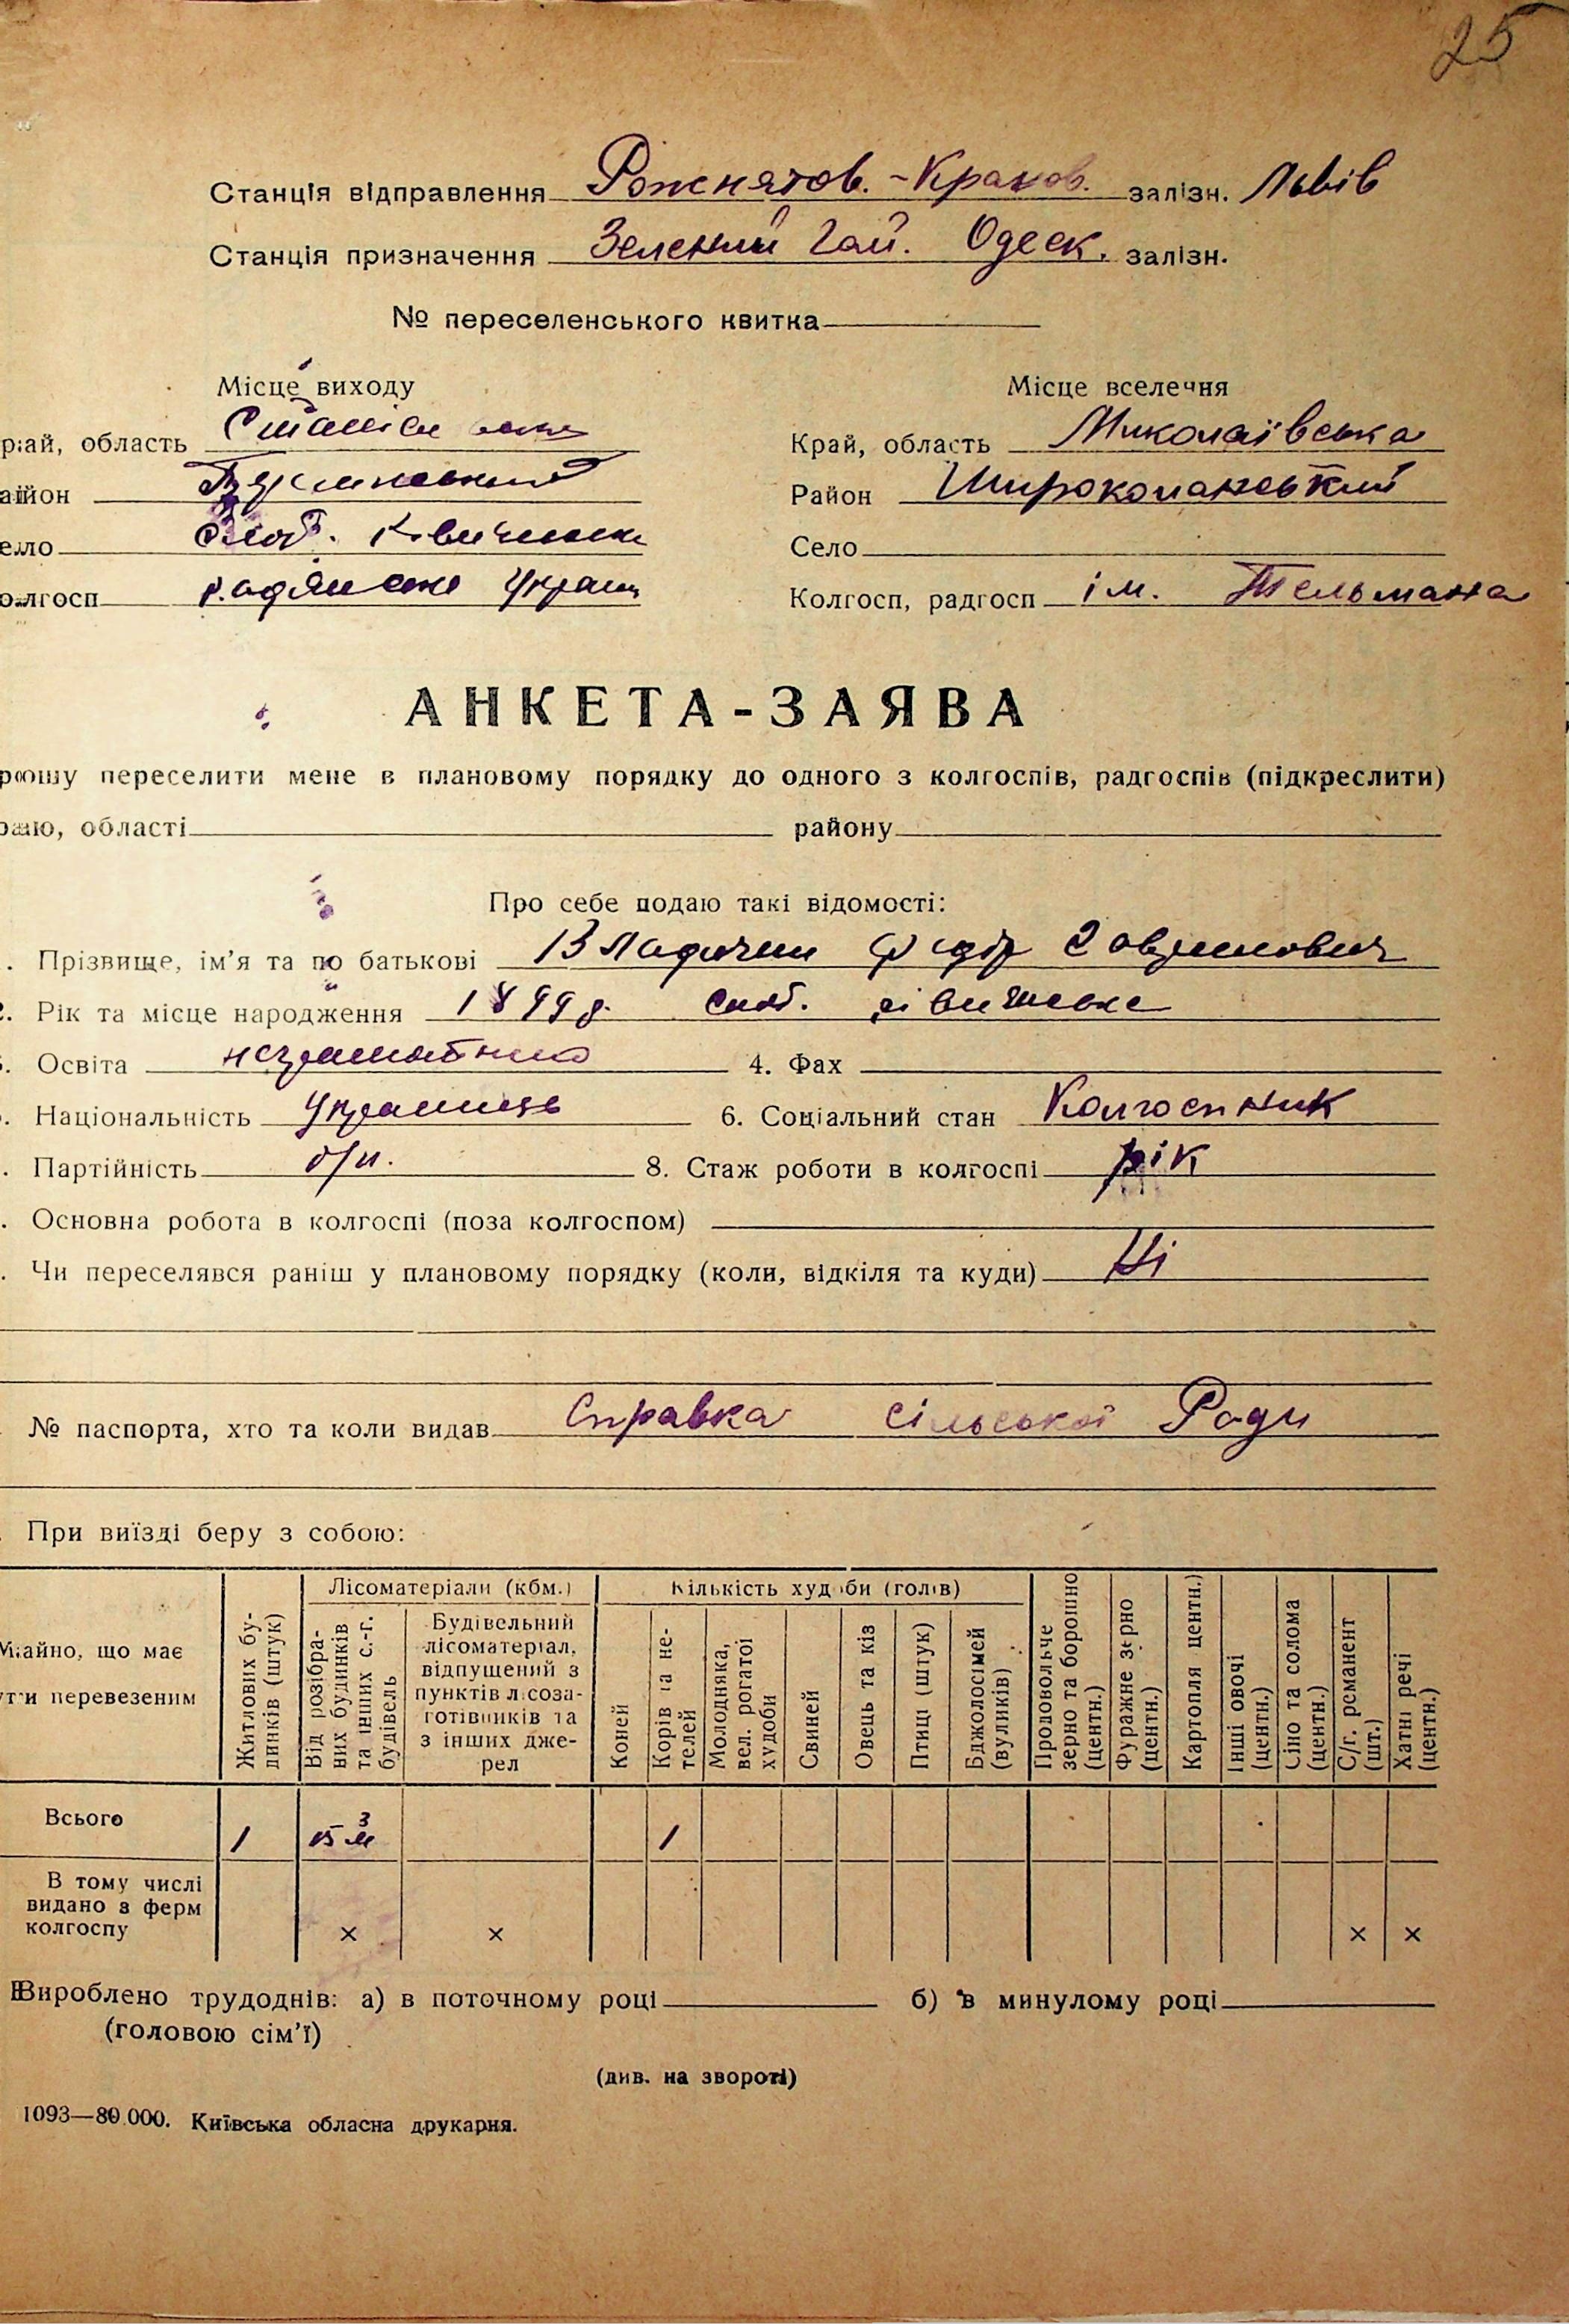 25
Станція відправлення Рожнятов.-Краков. залізн. Львів
Станція призначення Зелений Гай. Одеск. залізн.
№ переселенського квитка
Місце виходу
Місце вселення
рай, область Станісл
Край, область Миколаївська
айон
Район Широколанський
ело Слоб.
Село
олгосп радянське
Колгосп, радгосп ім. Тельмана
АНКЕТА-ЗАЯВА
рошу переселити мене в плановому порядку до одного з колгоспів, радгоспів (підкреслити)
раю, області району
Про себе подаю такі відомості:
. Прізвище, ім'я та по батькові Владичин Федір Гаврилович
2. Рік та місце народження 1899 р. Слоб.
. Освіта неграмотний 4. Фах
. Національність Українець 6. Соціальний стан Колгоспник
. Партійність б/п. 8. Стаж роботи в колгоспі рік
. Основна робота в колгоспі (поза колгоспом)
. Чи переселявся раніш у плановому порядку (коли, відкіля та куди) Ні
№ паспорта, хто та коли видав Справка сільської Ради
. При виїзді беру з собою:
Майно, що має
ути перевезеним
Житлових будинків (штук)
Лісоматеріали (кбм.)
Від розібраних будинків та інших с.-г. будівель
Будівельний лісоматеріал, відпущений з пунктів лісозаготівників та з інших джерел
Кількість худоби (голів)
Коней
Корів та нетелей
Молодняка, вел. рогатої худоби
Свиней
Овець та кіз
Птиці (штук)
Бджолосімей (вуликів)
Продовольче зерно та борошно (центн.)
Фуражне зерно (центн.)
Картопля центн.)
Інші овочі (центн.)
Сіно та солома (центн.)
С/г. реманент (шт.)
Хатні речі (центн.)
Всього 1 15 м3 1
В тому числі видано з ферм колгоспу × × × ×
Вироблено трудоднів: а) в поточному році б) в минулому році
(головою сім'ї)
(див. на звороті)
1093—80.000. Київська обласна друкарня.